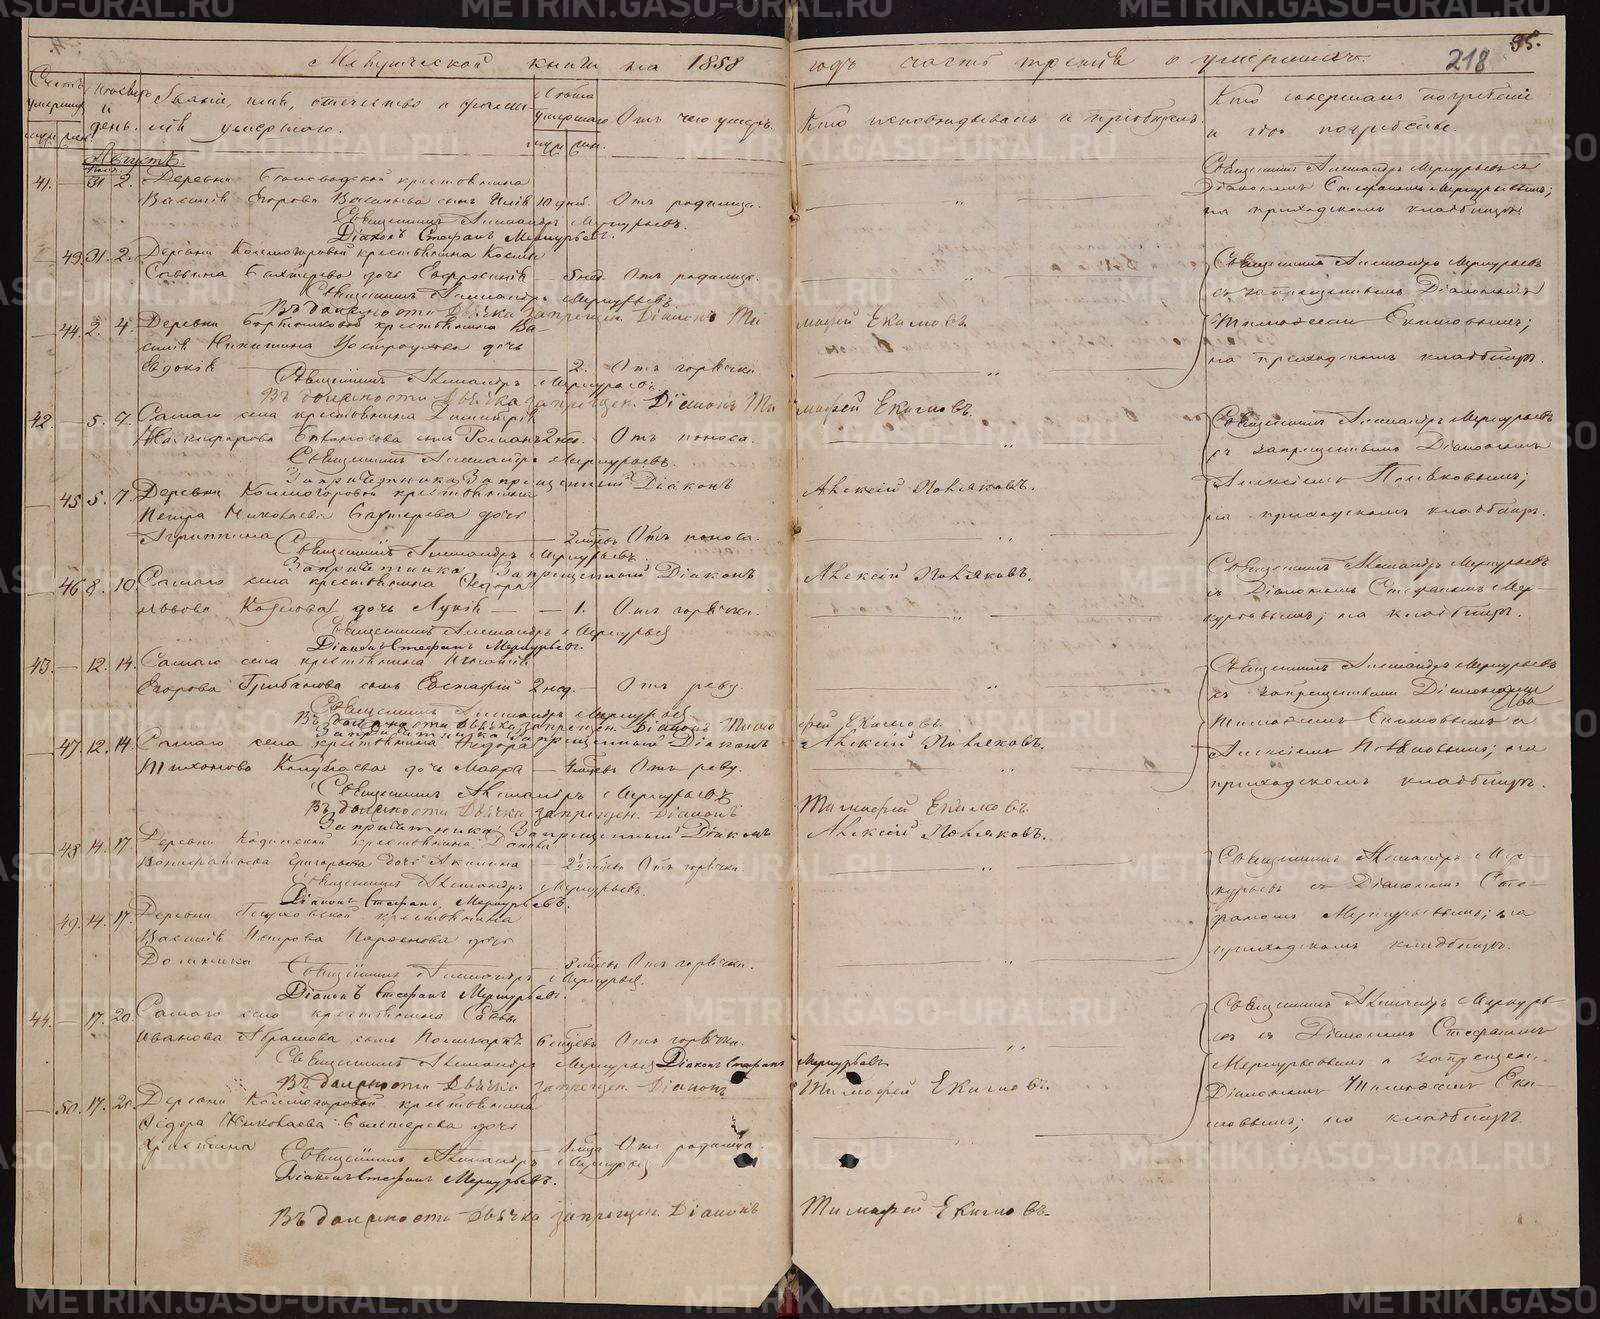 Метрической книги на 1858
годъ часть третія о умершихъ.
95.
218
Счетъ умершихъ
муж. жен.
Мѣсяцъ и день.
Званіе, имя, отчество и фамилія умершаго.
Лѣта умершаго
муж. жен.
Отъ чего умеръ.
Кто исповѣдывалъ и пріобщалъ.
Кто совершалъ погребеніе и гдѣ погребены.
Августъ.
41. — 31 2. Деревни крестьянина
Василія Егорова сынъ Илія 10 дней. Отъ родимца.
Священникъ Александръ Меркурьевъ.
Діаконъ Стефанъ Меркурьевъ.
Священникъ Александръ Меркурьевъ съ
Діакономъ Стефаномъ Меркурьевымъ;
на приходскомъ кладбищѣ.
— 43. 31. 2. Деревни Колмогоровой крестьянина Космы
Саввина Бахтерева дочь Евфросинія — 5 нед. Отъ родимца.
Священникъ Александръ Меркурьевъ.
Въ должности дьячка запрещен. Діаконъ Тимофей Екимовъ.
Священникъ Александръ Меркурьевъ
съ запрещеннымъ Діакономъ
Тимофеемъ Екимовымъ;
на приходскомъ кладбищѣ.
— 44. 2. 4. Деревни крестьянина Василія
Никитина дочь
Евдокія — 2. Отъ горячки.
Священникъ Александръ Меркурьевъ.
Въ должности дьячка запрещен. Діаконъ Тимофей Екимовъ.
42. — 5. 7. Самаго села крестьянина Димитрія
Никифорова сынъ Романъ 2 нед. Отъ поноса.
Священникъ Александръ Меркурьевъ.
Запричетника Запрещенный Діаконъ Алексій Поляковъ.
Священникъ Александръ Меркурьевъ
съ запрещеннымъ Діакономъ
Алексіемъ Поляковымъ;
на приходскомъ кладбищѣ.
— 45 5. 7. Деревни Колмогоровой крестьянина
Петра Николаева Бахтерева дочь
Агриппина — 2 мѣсев. Отъ поноса.
Священникъ Александръ Меркурьевъ.
Запричетника Запрещенный Діаконъ Алексій Поляковъ.
— 46 8. 10. Самаго села крестьянина Ѳедора
Львова дочь Лукія — 1. Отъ горячки.
Священникъ Александръ Меркурьевъ
Діаконъ Стефанъ Меркурьевъ.
Священникъ Александръ Меркурьевъ
съ Діакономъ Стефаномъ Мер-
курьевымъ; на кладбищѣ.
43. — 12. 14. Самаго села крестьянина Игнатія
Егорова Грибанова сынъ Евстафій 2 нед. — Отъ реву.
Священникъ Александръ Меркурьевъ
Въ должности дьячка запрещен. Діаконъ Тимофей Екимовъ.
Запричетника Запрещенный Діаконъ Алексій Поляковъ.
Священникъ Александръ Меркурьевъ
съ запрещенными Діаконами
Тимофеемъ Екимовымъ и
Алексіемъ Поляковымъ; на
приходскомъ кладбищѣ.
— 47. 12. 14. Самаго села крестьянина Ѳедора
Тихонова дочь Мавра — 4 мѣсев Отъ реву.
Священникъ Александръ Меркурьевъ
Въ должности дьячка запрещен. Діаконъ Тимофей Екимовъ.
Запричетника Запрещенный Діаконъ Алексій Поляковъ.
— 48 14. 17. Деревни крестьянина Данила
Григорьева дочь Акилина — 2½ мѣсев Отъ горячки
Священникъ Александръ Меркурьевъ.
Діаконъ Стефанъ Меркурьевъ.
Священникъ Александръ Мер-
курьевъ съ Діакономъ Сте-
фаномъ Меркурьевымъ; на
приходскомъ кладбищѣ.
— 49. 14. 17. Деревни крестьянина
Василія Петрова Парѳенова дочь
Домника — 8 мѣсев Отъ горячки.
Священникъ Александръ Меркурьевъ.
Діаконъ Стефанъ Меркурьевъ.
44. — 17. 20. Самаго села крестьянина Саввы
Иванова Абрамова сынъ Поликарпъ 6 мѣсев Отъ горячки.
Священникъ Александръ Меркурьевъ Діаконъ Стефанъ Меркурьевъ
Въ должности дьячка запрещен. Діаконъ Тимофей Екимовъ.
Священникъ Александръ Меркурь-
евъ съ Діакономъ Стефаномъ
Меркурьевымъ и запрещен.
Діакономъ Тимофеемъ Еки-
мовымъ; на кладбищѣ.
— 50. 17. 20. Деревни Колмогоровой крестьянина
Сидора Николаева Бахтерева дочь
Христина — Отъ родимца
Священникъ Александръ Меркурьевъ
Діаконъ Стефанъ Меркурьевъ.
Въ должности дьячка запрещен. Діаконъ Тимофей Екимовъ.
METRIKI.GASO-URAL.RU